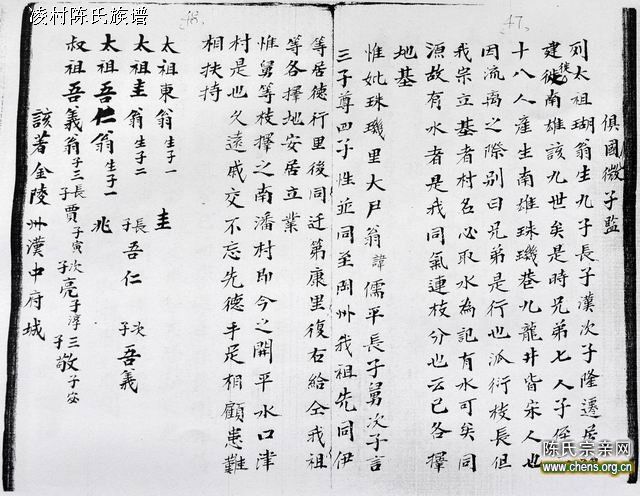 凌村陈氏族谱
47.
俱國微子監
列太祖瑚翁生九子長子漢次子隆遷居
建徙南雄該九世矣是時兄弟七人子侄
十八人產生南雄珠璣巷九龍井皆宋人也
因流离之際別曰兄弟是行也派衍枝長但
我崇立基者村名必取水為記有水可矣同
源故有水者是我同氣連枝分也云已各擇
地基
惟妣珠璣里大尸翁諱儒平長子舅次子言
三子尊四子性並同至岡州我祖先同伊
48.
等居德行里後同迁第康里復右給仝我祖
等各擇地安居立業
惟舅等枝擇之南潘村即今之開平水口津
村是也久遠戚交不忘先德手足相顧患難
相扶持
太祖東翁生子一 圭
太祖圭翁生子二 長子吾仁 次子吾義
太祖吾仁翁生子一 兆
叔祖吾義翁子三長子賈子寅次子亮子淳三子敬子安
該著金陵州漢中府城
陈氏宗亲网
www.chens.org.cn